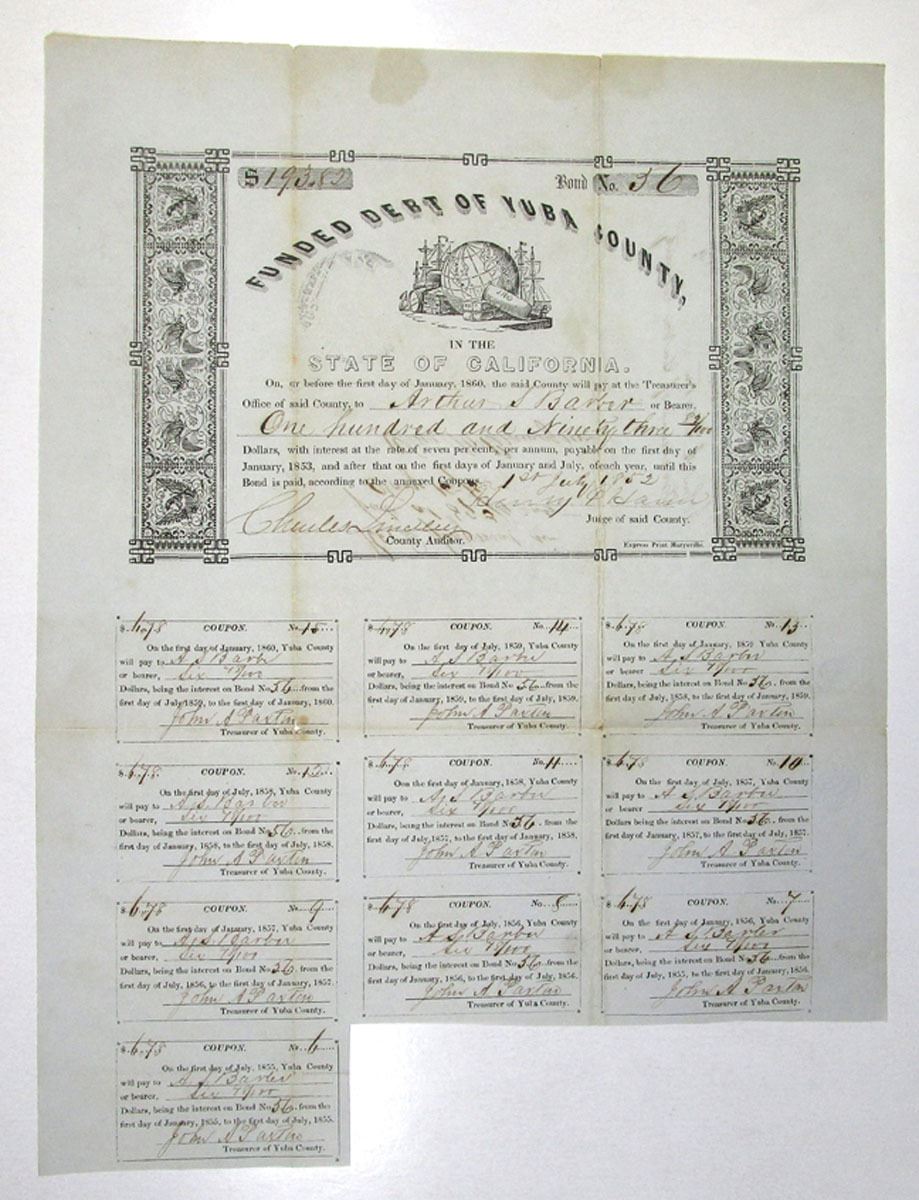 $ 193.82 Bond No. 56
FUNDED DEBT OF YUBA COUNTY,
IN THE
STATE OF CALIFORNIA.
On, or before the first day of January, 1860, the said County will pay at the Treasurer's
Office of said County, to Arthur S Barber or Bearer,
One hundred and Ninety three 82/100
Dollars, with interest at the rate of seven per cent, per annum, payable on the first day of
January, 1853, and after that on the first days of January and July, of each year, until this
Bond is paid, according to the annexed Coupons. 1st July 1852
Charles
Judge of said County.
County Auditor.
Express Print. Marysville.
$ 6.78 COUPON. No. 15
On the first day of January, 1860, Yuba County
will pay to A S Barber
or bearer, Six 78/100
Dollars, being the interest on Bond No 56 from the
first day of July 1859, to the first day of January, 1860.
John A Paxton
Treasurer of Yuba County.
$ 6.78 COUPON. No. 14
On the first day of July, 1859, Yuba County
will pay to A S Barber
or bearer, Six 78/100
Dollars, being the interest on Bond No 56 from the
first day of January, 1859, to the first day of July, 1859.
John A Paxton
Treasurer of Yuba County.
$ 6.78 COUPON. No. 13
On the first day of January, 1859 Yuba County
will pay to A S Barber
or bearer Six 78/100
Dollars, being the interest on Bond No 56. from the
first day of July, 1858, to the first day of January, 1859.
John A Paxton
Treasurer of Yuba County.
$ 6.78 COUPON. No. 12
On the first day of July, 1858, Yuba County
will pay to A. S. Barber
or bearer, Six 78/100
Dollars, being the interest on Bond No 56. from the
first day of January, 1858, to the first day of July, 1858.
John A Paxton
Treasurer of Yuba County.
$ 6.78 COUPON. No. 11
On the first day of January, 1858, Yuba County
will pay to A S Barber
or bearer, Six 78/100
Dollars, being the interest on Bond No 56. from the
first day of July, 1857, to the first day of January, 1858.
John A Paxton
Treasurer of Yuba County.
$ 6.78 COUPON. No. 10
On the first day of July, 1857, Yuba County
will pay to A S Barber
or bearer Six 78/100
Dollars, being the interest on Bond No 56. from the
first day of January, 1857, to the first day of July, 1857.
John A Paxton
Treasurer of Yuba County.
$ 6.78 COUPON. No. 9
On the first day of January, 1857, Yuba County
will pay to A. S. Barber
or bearer, Six 78/100
Dollars, being the interest on Bond No 56. from the
first day of July, 1856, to the first day of January, 1857.
John A Paxton
Treasurer of Yuba County.
$ 6.78 COUPON. No. 8
On the first day of July, 1856, Yuba County
will pay to A S Barber
or bearer, Six 78/100
Dollars, being the interest on Bond No 56. from the
first day of January, 1856, to the first day of July, 1856.
John A Paxton
Treasurer of Yuba County.
$ 6.78 COUPON. No. 7
On the first day of January, 1856, Yuba County
will pay to A S Barber
or bearer, Six 78/100
Dollars, being the interest on Bond No 56. from the
first day of July, 1855, to the first day of January, 1856.
John A Paxton
Treasurer of Yuba County.
$ 6.78 COUPON. No. 6
On the first day of July, 1855, Yuba County
will pay to A S Barber
or bearer, Six 78/100
Dollars, being the interest on Bond No 56. from the
first day of January, 1855, to the first day of July, 1855.
John A Paxton
Treasurer of Yuba County.